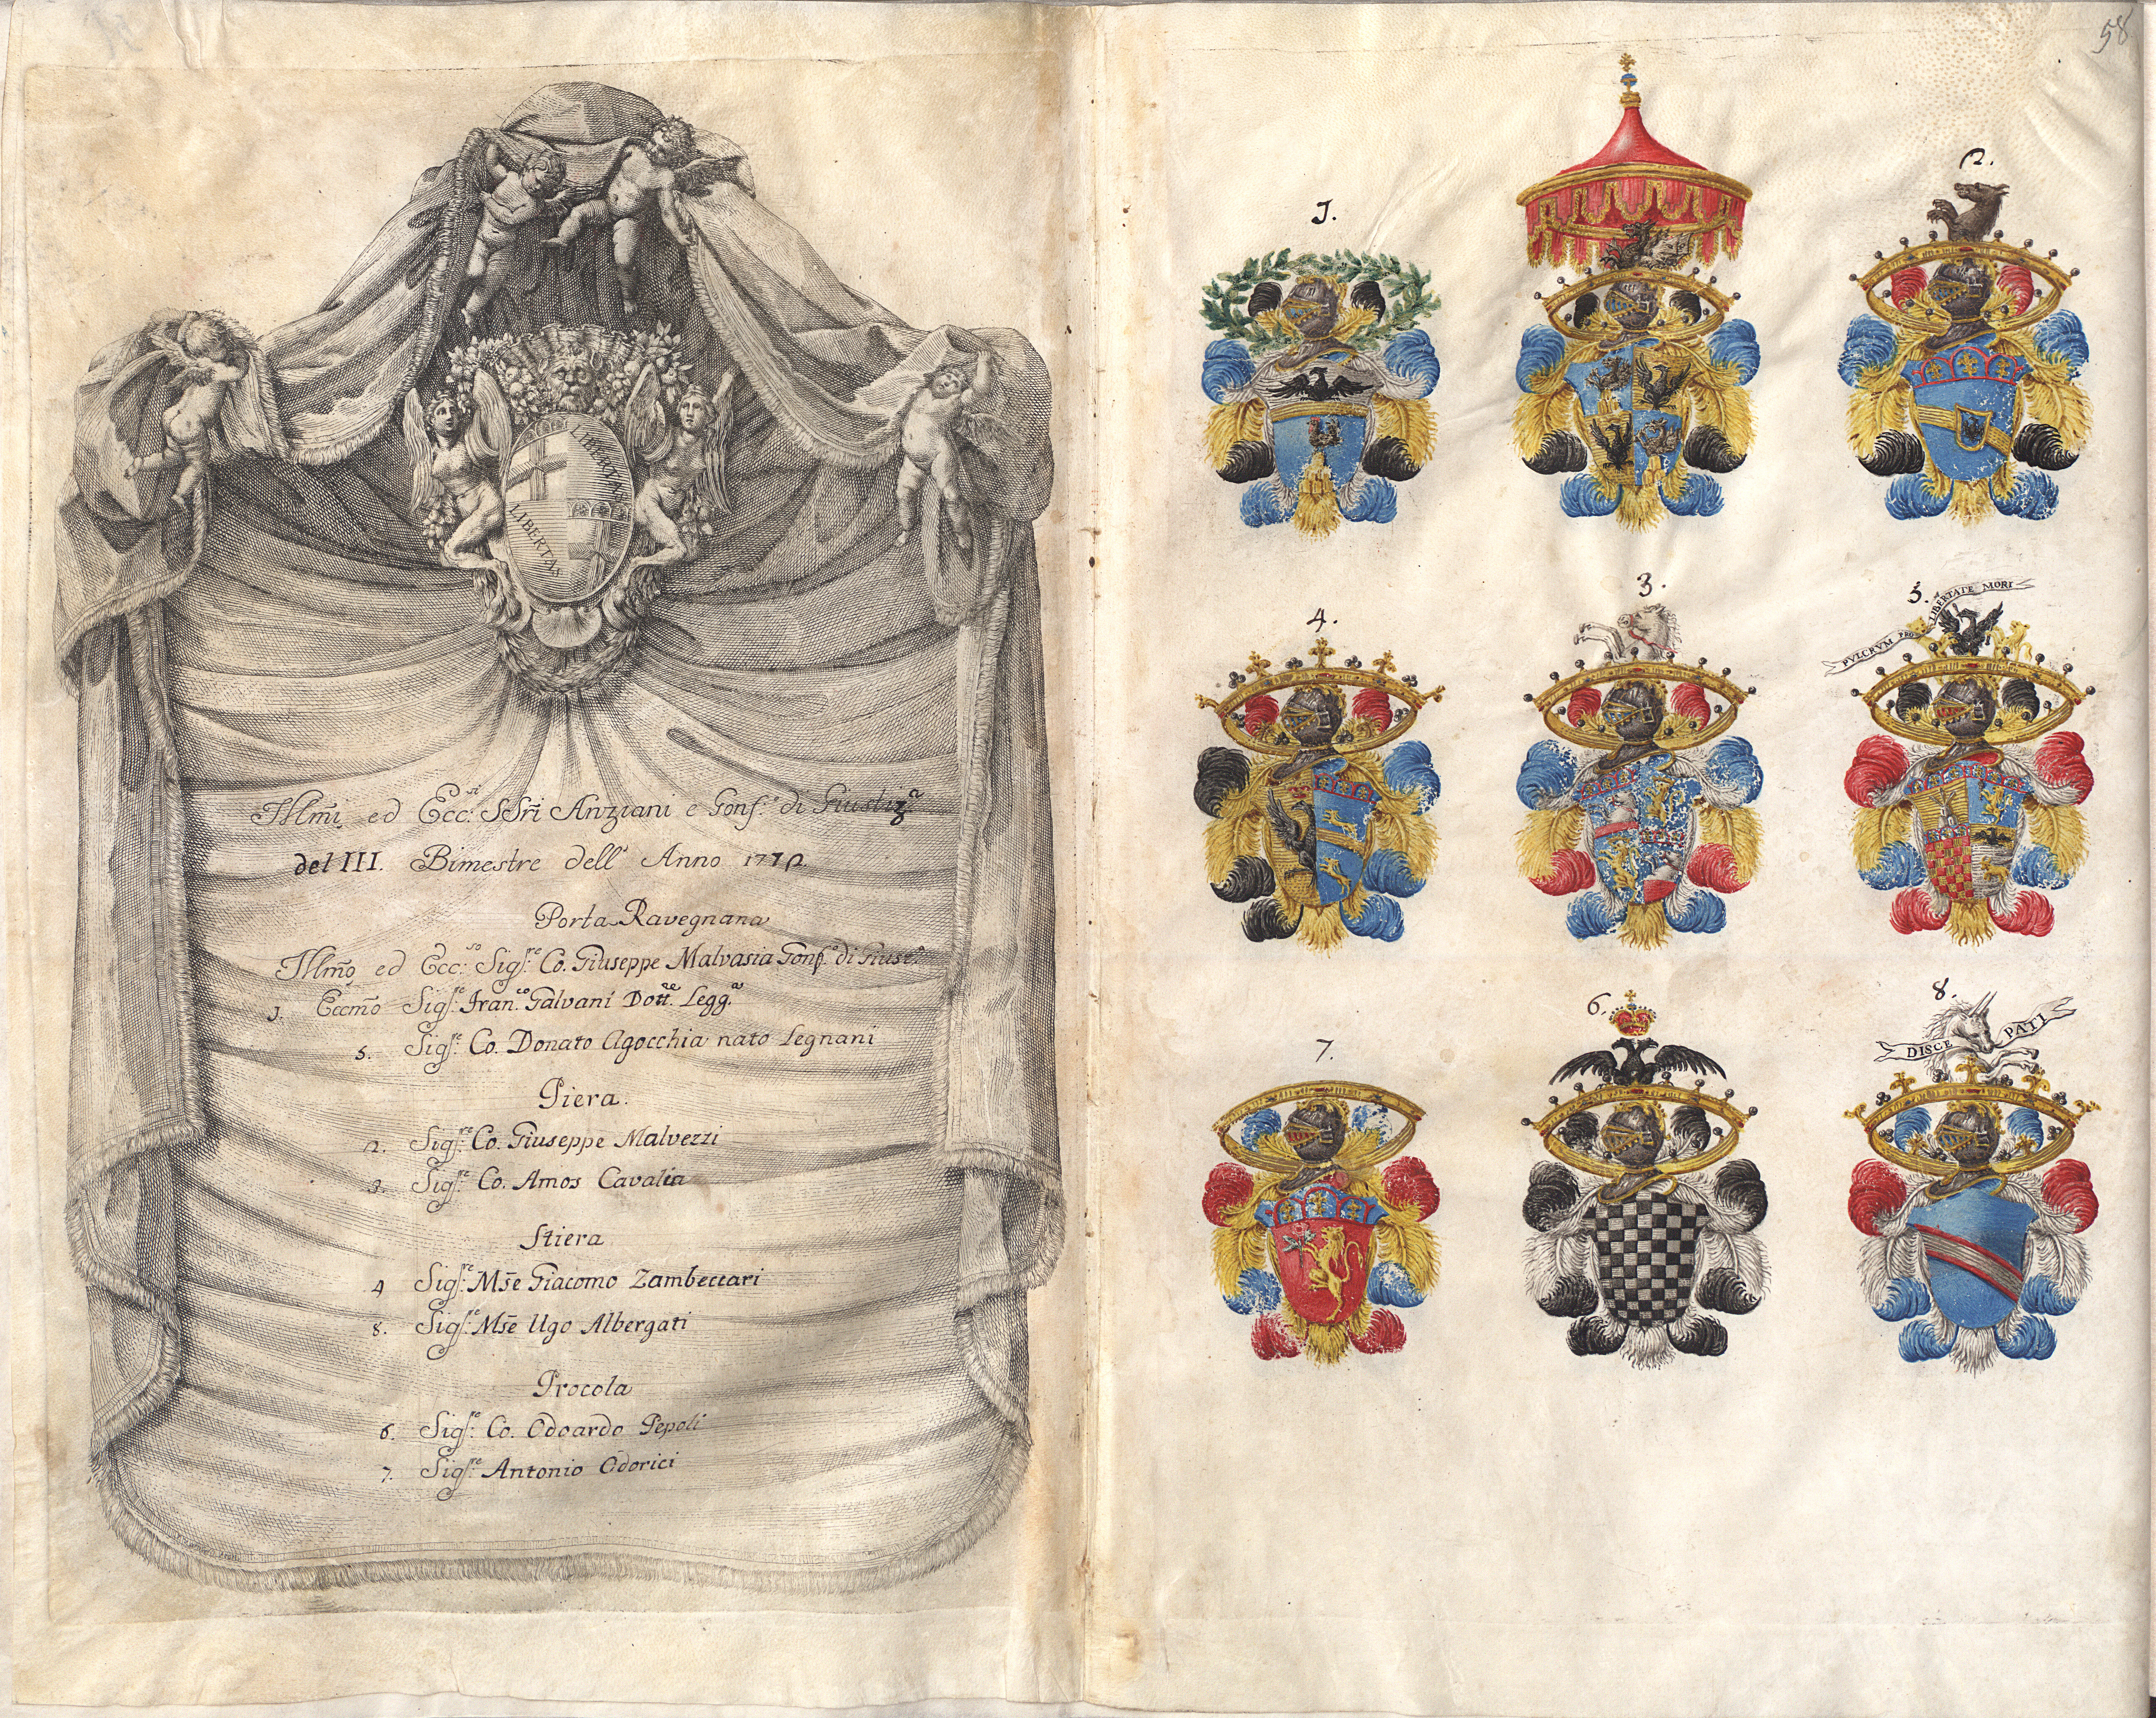 LIBERTAS
LIBERTAS
Illm̃i ed Ecc:si SSri Anziani e Gonf.e di Giustiza
del III. Bimestre dell' Anno 1772.
Porta Ravegnana
Illm̃o ed Ecc:so Sigr̃e Co. Giuseppe Malvasia Gonf.e di Giust.a
1. Eccm̃o Sig:re Fran:co Galvani Dott:re Legg.e
5. Sig:re Co. Donato Agocchia nato Legnani
Piera.
2. Sig:re Co. Giuseppe Malvezzi
3. Sig:re Co. Amos Cavalca
Stiera
4 Sig:re Mse Giacomo Zambeccari
8. Sig:re Mse Ugo Albergati
Procola
6. Sig:re Co. Odoardo Pepoli
7. Sig:re Antonio Odorici
58
1.
2.
4.
3.
5.
PVLCRVM PRO LIBERTATE MORI
7.
6.
8.
DISCE PATI